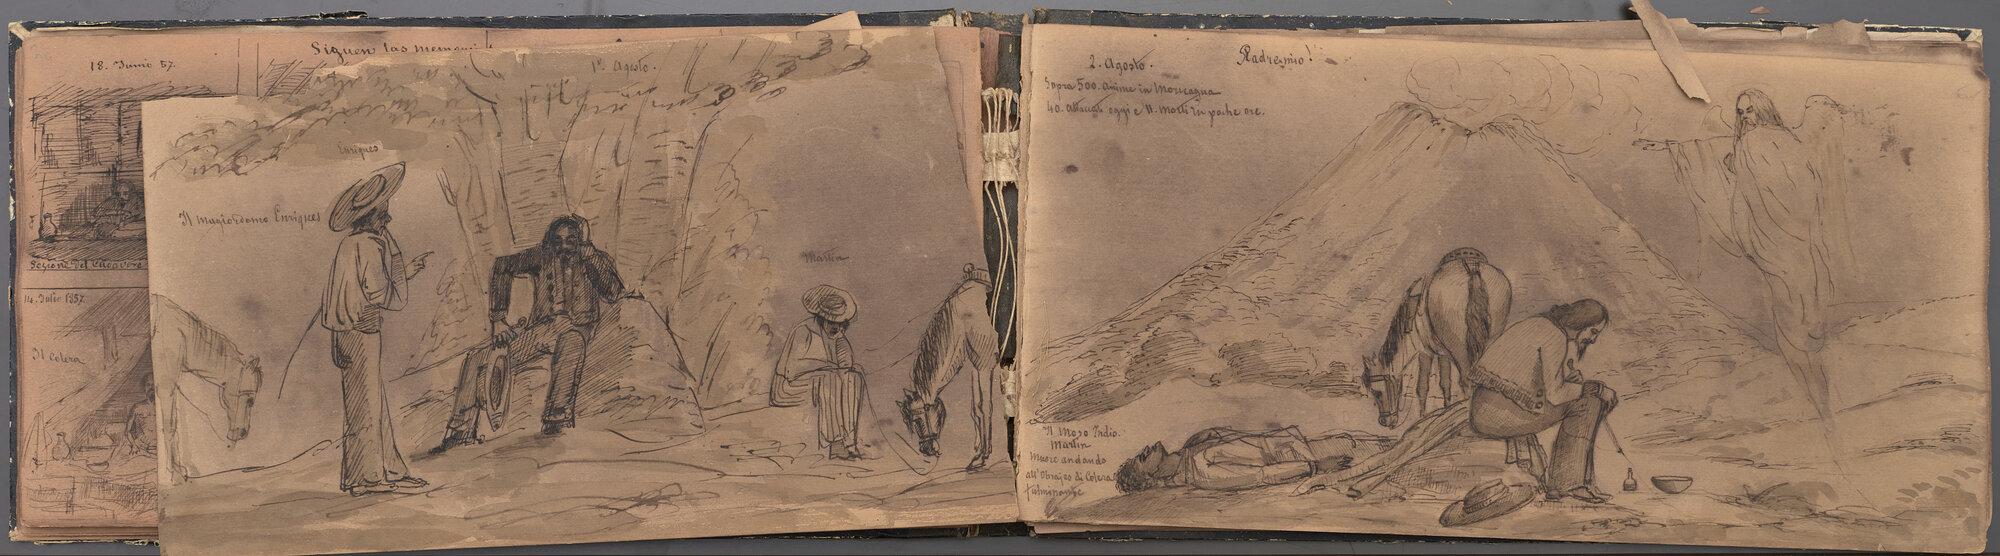 Siguen las memori
18. Junio 57.
Sezione del Cadavere
14. Julio 1857.
Il Colera
1º. Agosto.
Enriques
Il magiordomo Enriques
Martin
2. Agosto.
Padre mio!
Sopra 500. anime in Moncagua
40. attaccati oggi e 11. Morti in poche ore.
Il Mozo Indio.
Martin
muore andando
all'Obrajeo di Colera
fulminante